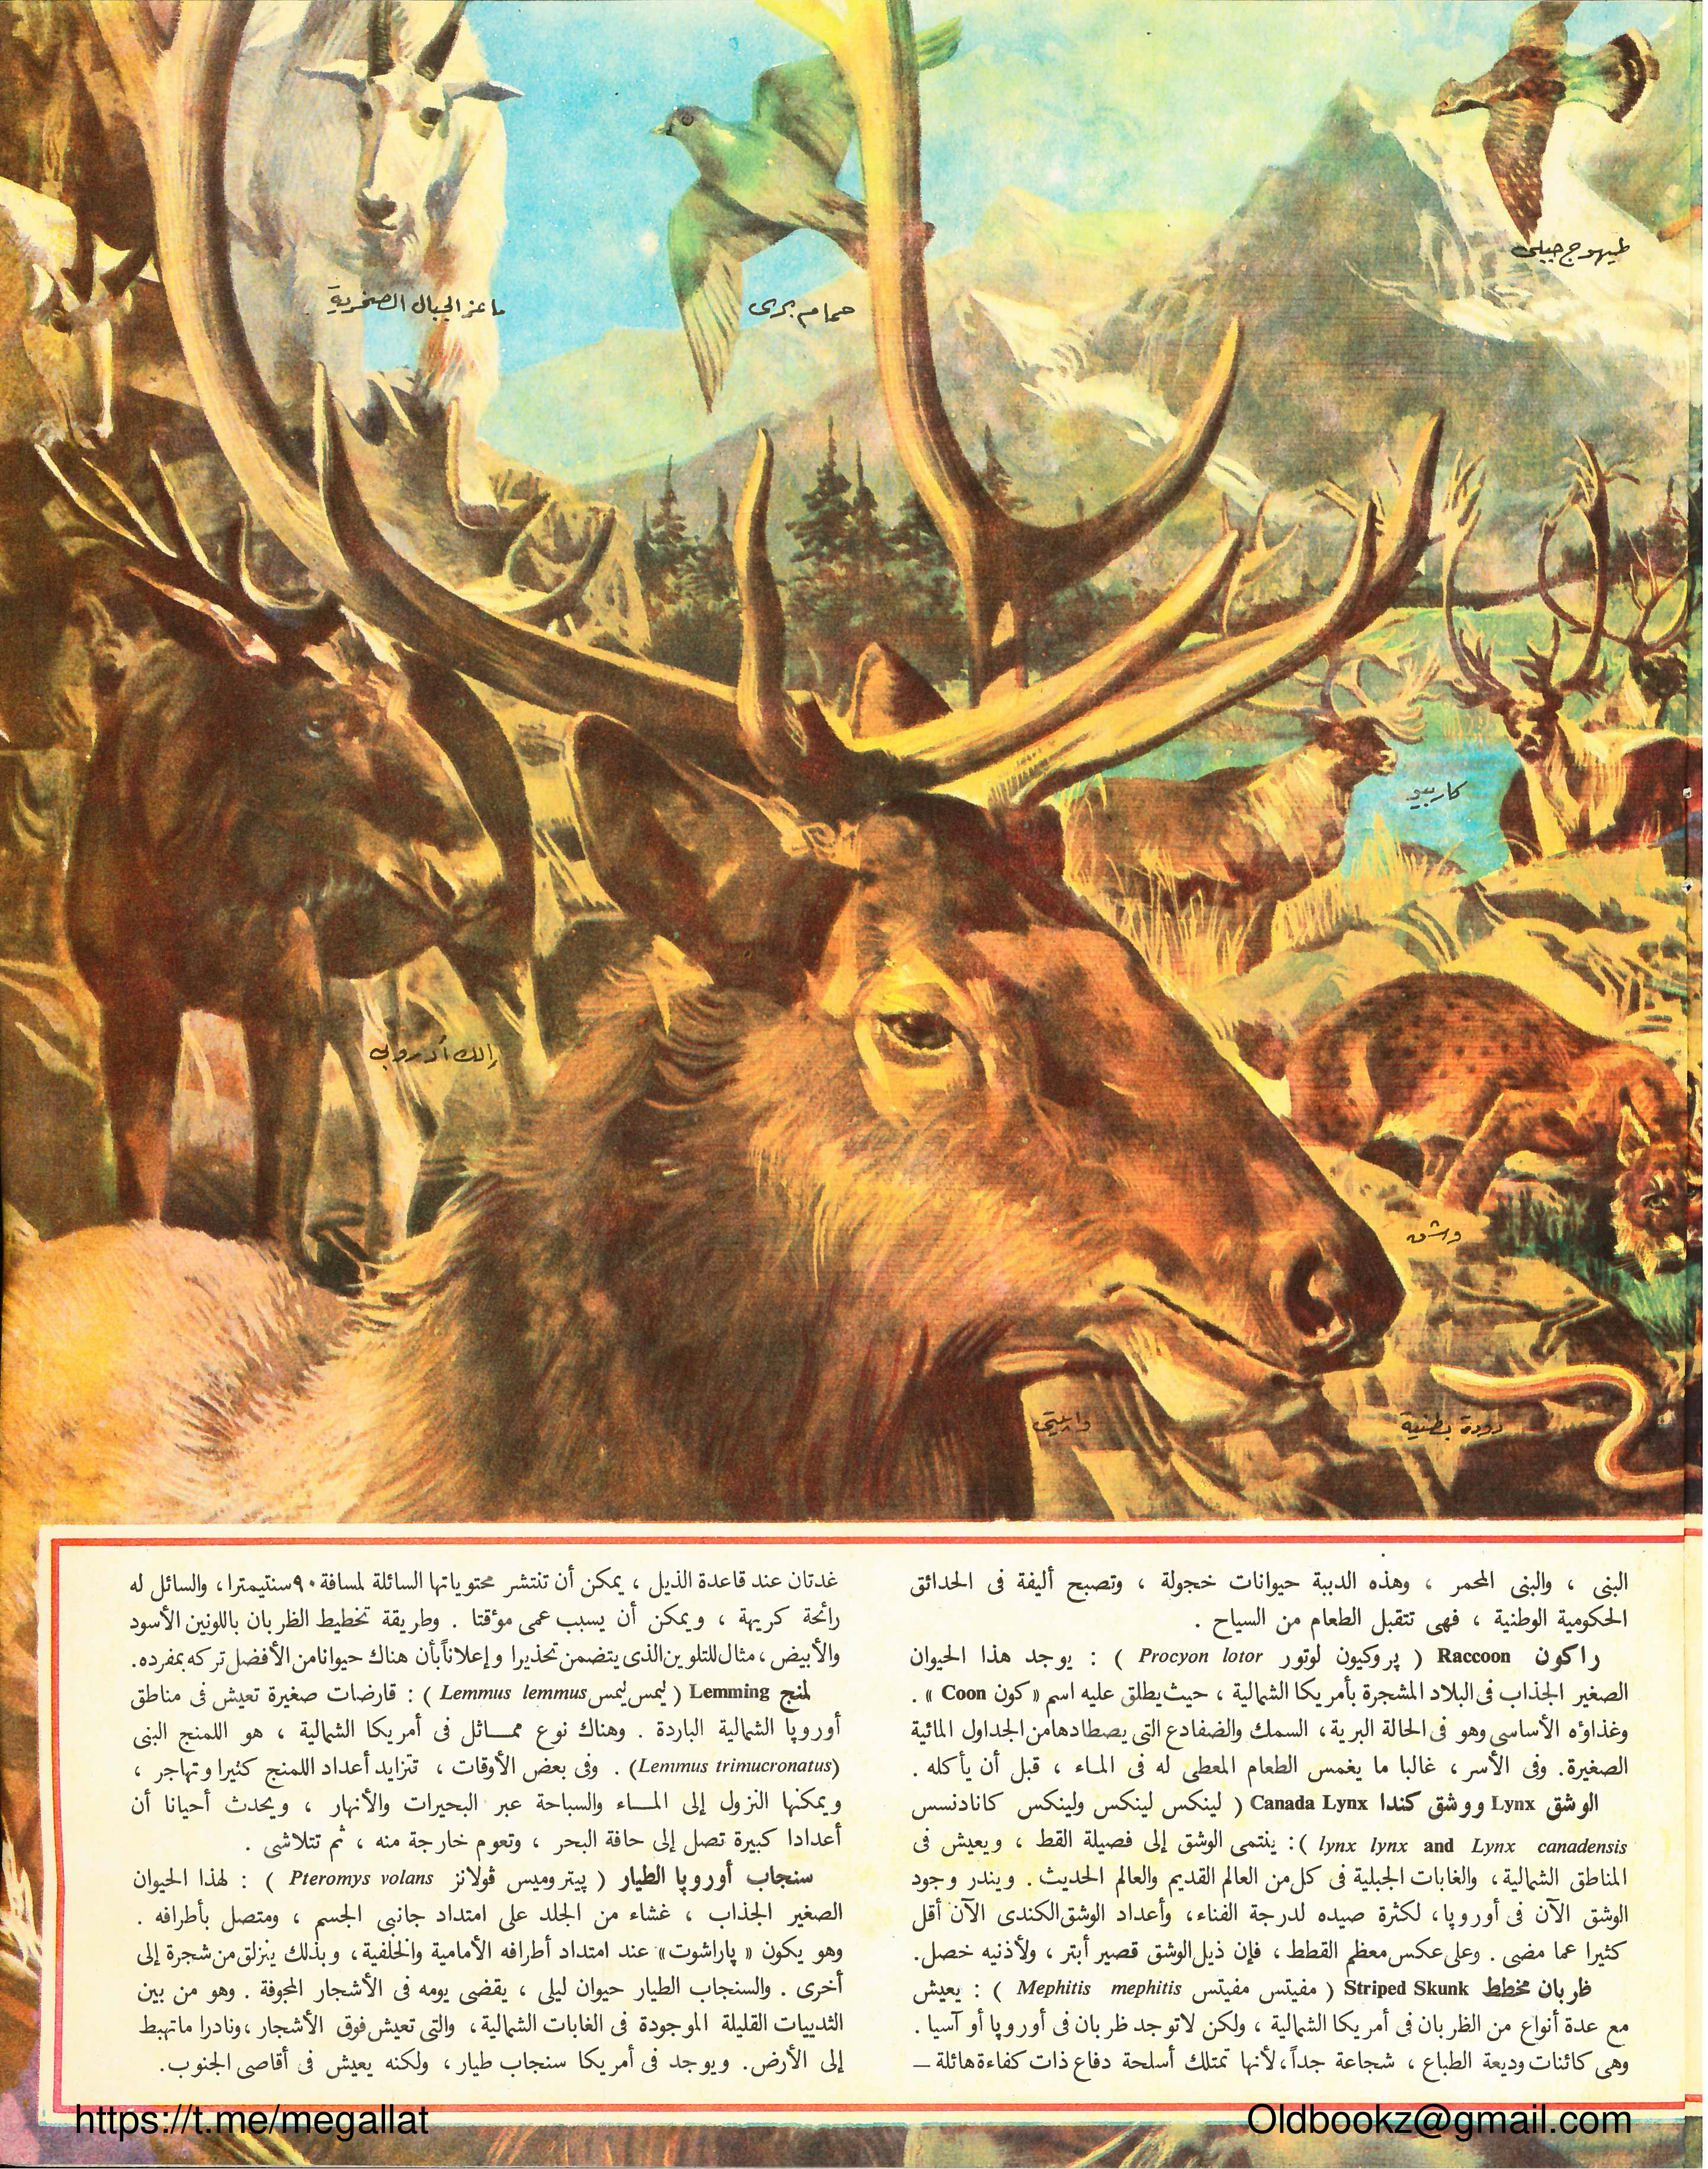 طيهوج جبلى
حمام برى
ماعز الجبال الصخرية
كاريبو
إلك أوروبى
وشق
وابيتى
دودة بطنية
البنى ، والبنى المحمر ، وهذه الدببة حيوانات خجولة ، وتصبح أليفة فى الحدائق
الحكومية الوطنية ، فهى تتقبل الطعام من السياح .
راكون Raccoon ( پروكيون لوتور Procyon lotor ) : يوجد هذا الحيوان
الصغير الجذاب فى البلاد المشجرة بأمريكا الشمالية ، حيث يطلق عليه اسم « كون Coon » .
وغذاؤه الأساسى وهو فى الحالة البرية ، السمك والضفادع التى يصطادها من الجداول المائية
الصغيرة. وفى الأسر ، غالبا ما يغمس الطعام المعطى له فى الماء ، قبل أن يأكله .
الوشق Lynx ووشق كندا Canada Lynx ( لينكس لينكس ولينكس كانادنسس
lynx lynx and Lynx canadensis ): ينتمى الوشق إلى فصيلة القط ، ويعيش فى
المناطق الشمالية ، والغابات الجبلية فى كل من العالم القديم والعالم الحديث . ويندر وجود
الوشق الآن فى أوروپا ، لكثرة صيده لدرجة الفناء ، وأعداد الوشق الكندى الآن أقل
كثيرا عما مضى . وعلى عكس معظم القطط ، فإن ذيل الوشق قصير أبتر ، ولأذنيه خصل.
ظربان مخطط Striped Skunk ( مفيتس مفيتس Mephitis mephitis ) : يعيش
مع عدة أنواع من الظربان فى أمريكا الشمالية ، ولكن لاتوجد ظربان فى أوروپا أو آسيا .
وهى كائنات وديعة الطباع ، شجاعة جداً ، لأنها تمتلك أسلحة دفاع ذات كفاءة هائلة —
غدتان عند قاعدة الذيل ، يمكن أن تنتشر محتوياتها السائلة لمسافة ٩٠ سنتيمترا ، والسائل له
رائحة كريهة ، ويمكن أن يسبب عمى مؤقتا . وطريقة تخطيط الظربان باللونين الأسود
والأبيض ، مثال للتلوين الذى يتضمن تحذيرا وإعلاناً بأن هناك حيوانا من الأفضل تركه بمفرده.
لمنج Lemming ( ليمس ليمس Lemmus lemmus ) : قارضات صغيرة تعيش فى مناطق
أوروپا الشمالية الباردة . وهناك نوع مماثل فى أمريكا الشمالية ، هو اللمنج البنى
(Lemmus trimucronatus) . وفى بعض الأوقات ، تتزايد أعداد اللمنج كثيرا وتهاجر ،
ويمكنها النزول إلى الماء والسباحة عبر البحيرات والأنهار ، ويحدث أحيانا أن
أعدادا كبيرة تصل إلى حافة البحر ، وتعوم خارجة منه ، ثم تتلاشى .
سنجاب أوروپا الطيار ( پيتروميس ڤولانز Pteromys volans ) : لهذا الحيوان
الصغير الجذاب ، غشاء من الجلد على امتداد جانبى الجسم ، ومتصل بأطرافه .
وهو يكون « پاراشوت» عند امتداد أطرافه الأمامية والخلفية ، وبذلك ينزلق من شجرة إلى
أخرى . والسنجاب الطيار حيوان ليلى ، يقضى يومه فى الأشجار المجوفة . وهو من بين
الثدييات القليلة الموجودة فى الغابات الشمالية ، والتى تعيش فوق الأشجار ، ونادرا ماتهبط
إلى الأرض. ويوجد فى أمريكا سنجاب طيار ، ولكنه يعيش فى أقاصى الجنوب.
https://t.me/megallat
Oldbookz@gmail.com